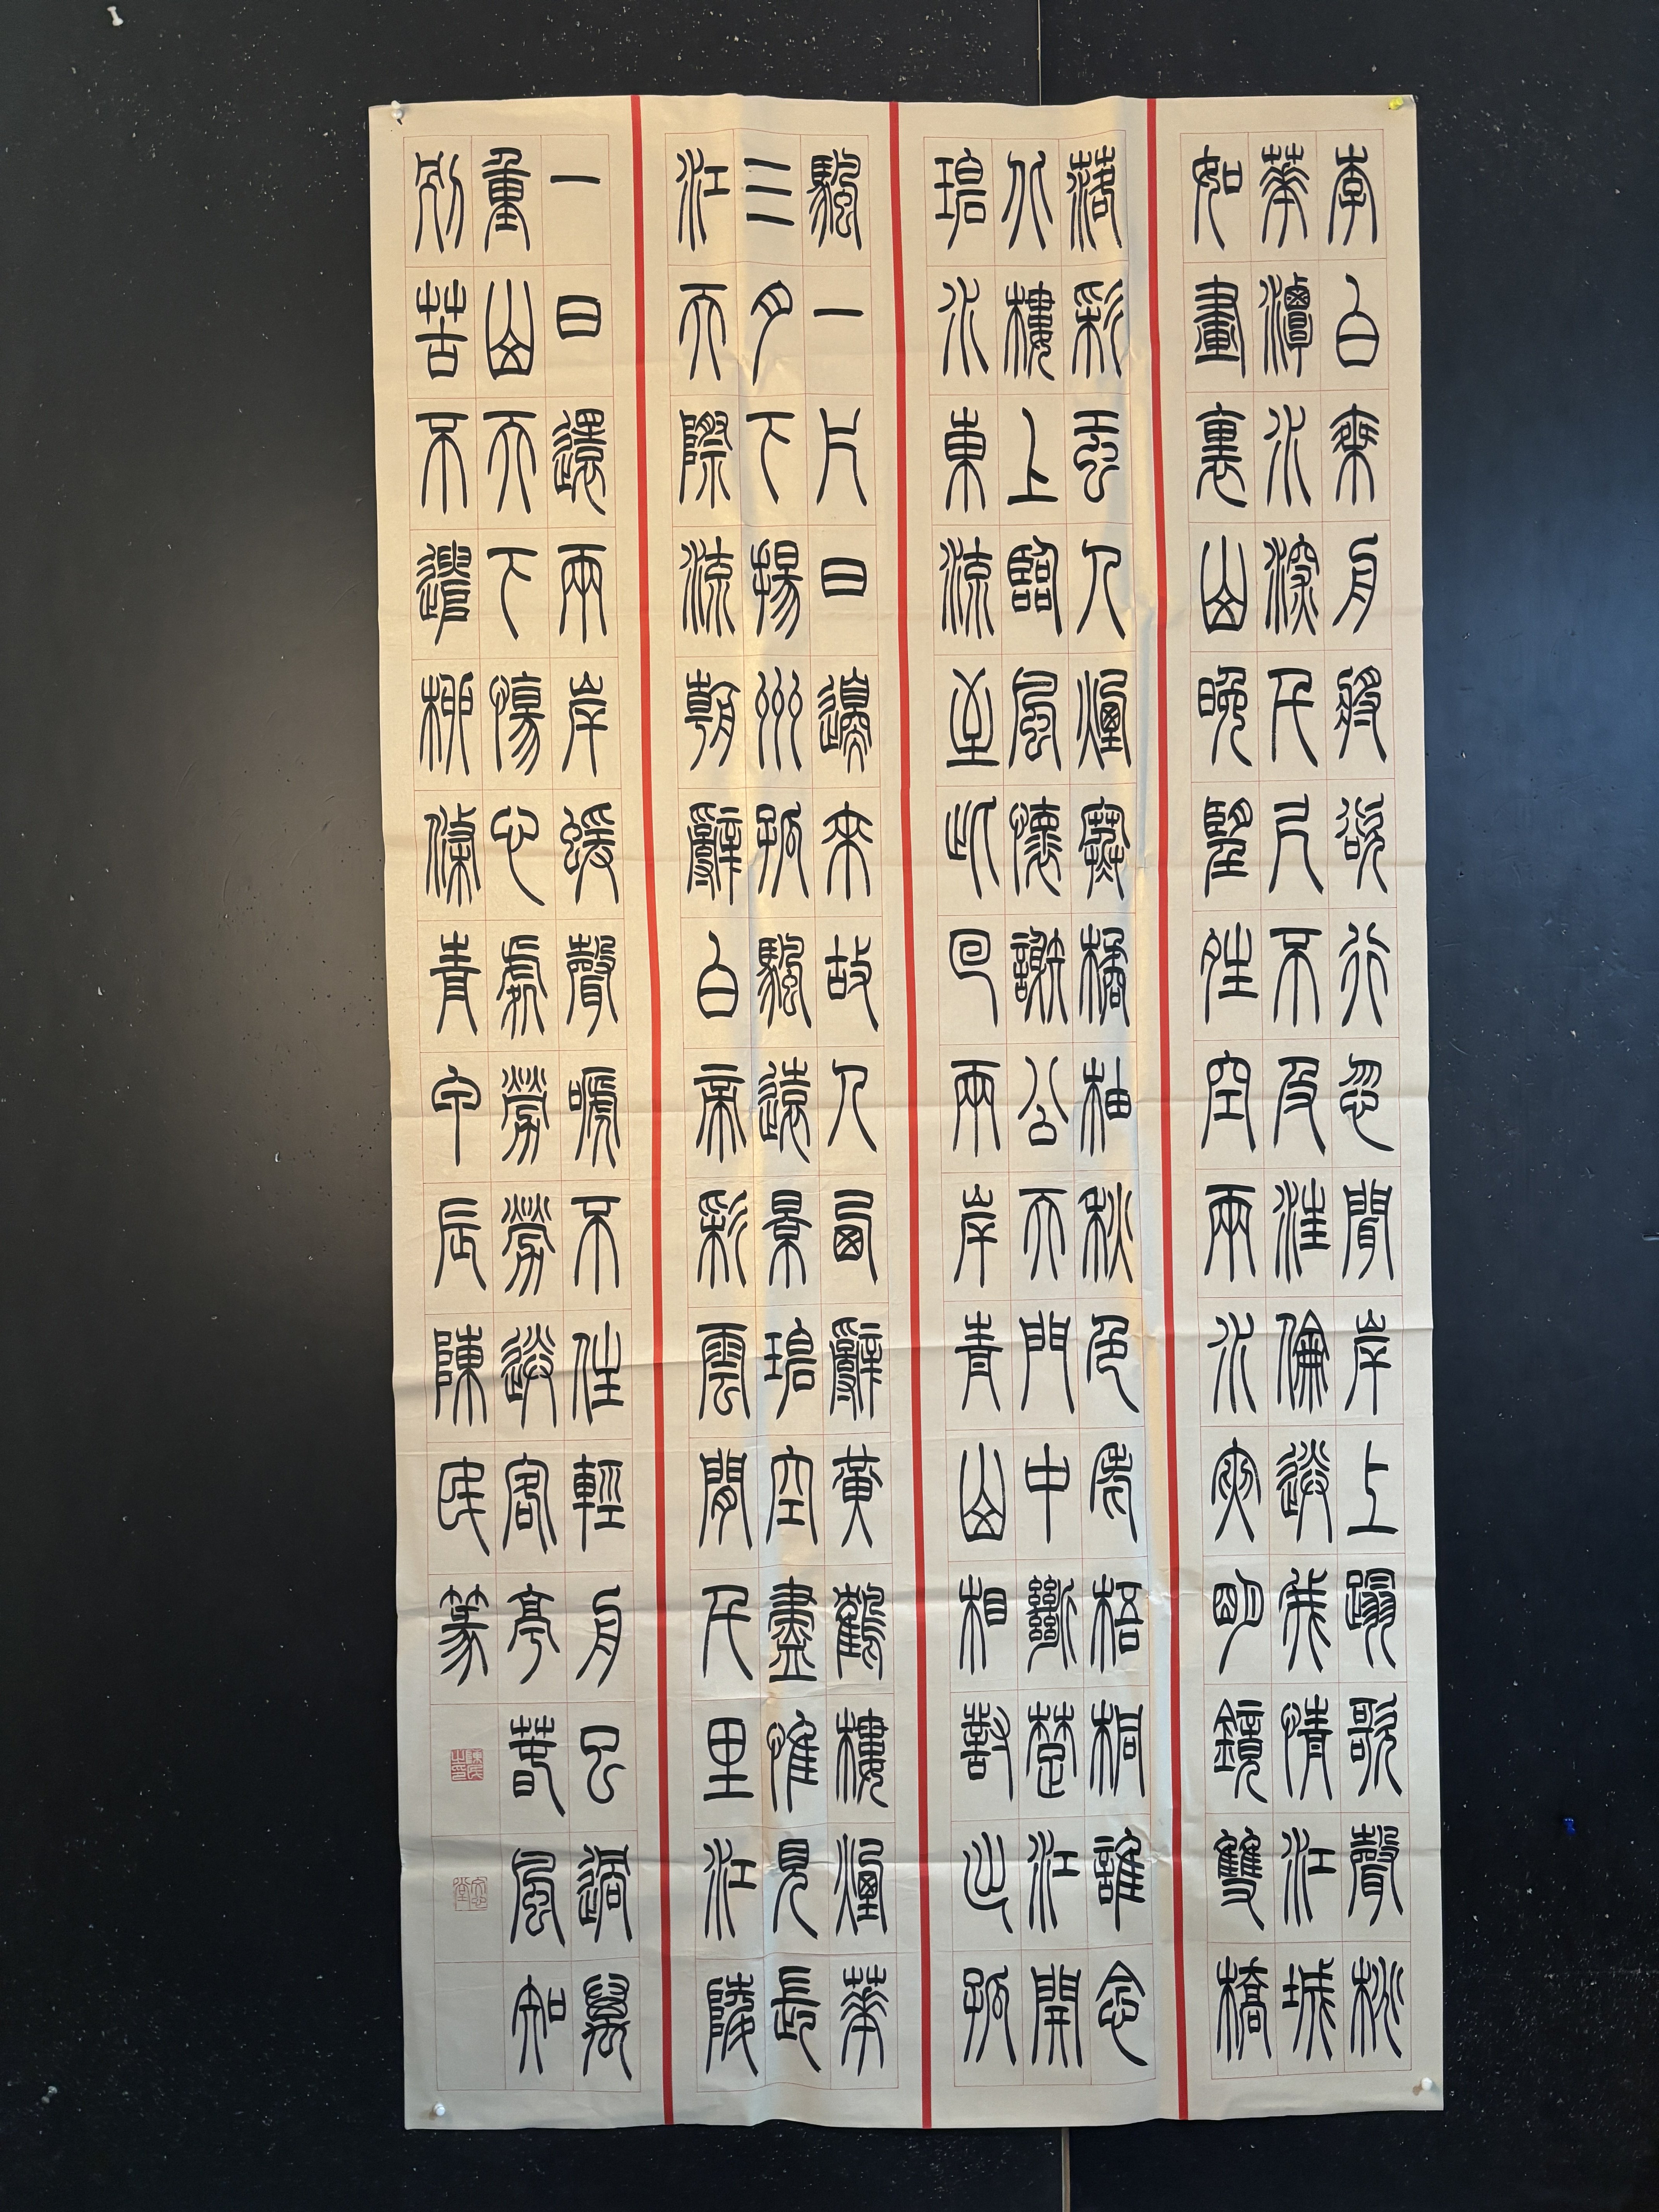 李白乘舟將欲行忽聞岸上蹋歌聲桃
華潭水深千尺不及汪倫送我情江城
如畫裏山晚望晴空兩水夾明鏡雙橋
落彩虹人煙寒橘柚秋色老梧桐誰念
北樓上臨風懷謝公天門中斷楚江開
碧水東流至此回兩岸青山相對出孤
帆一片日邊來故人西辭黃鶴樓煙華
三月下揚州孤帆遠景碧空盡惟見長
江天際流朝辭白帝彩雲間千里江陵
一日還兩岸猨聲嗁不住輕舟已過萬
重山天下傷心處勞勞送客亭春風知
別苦不遣柳條青甲辰陳民篆